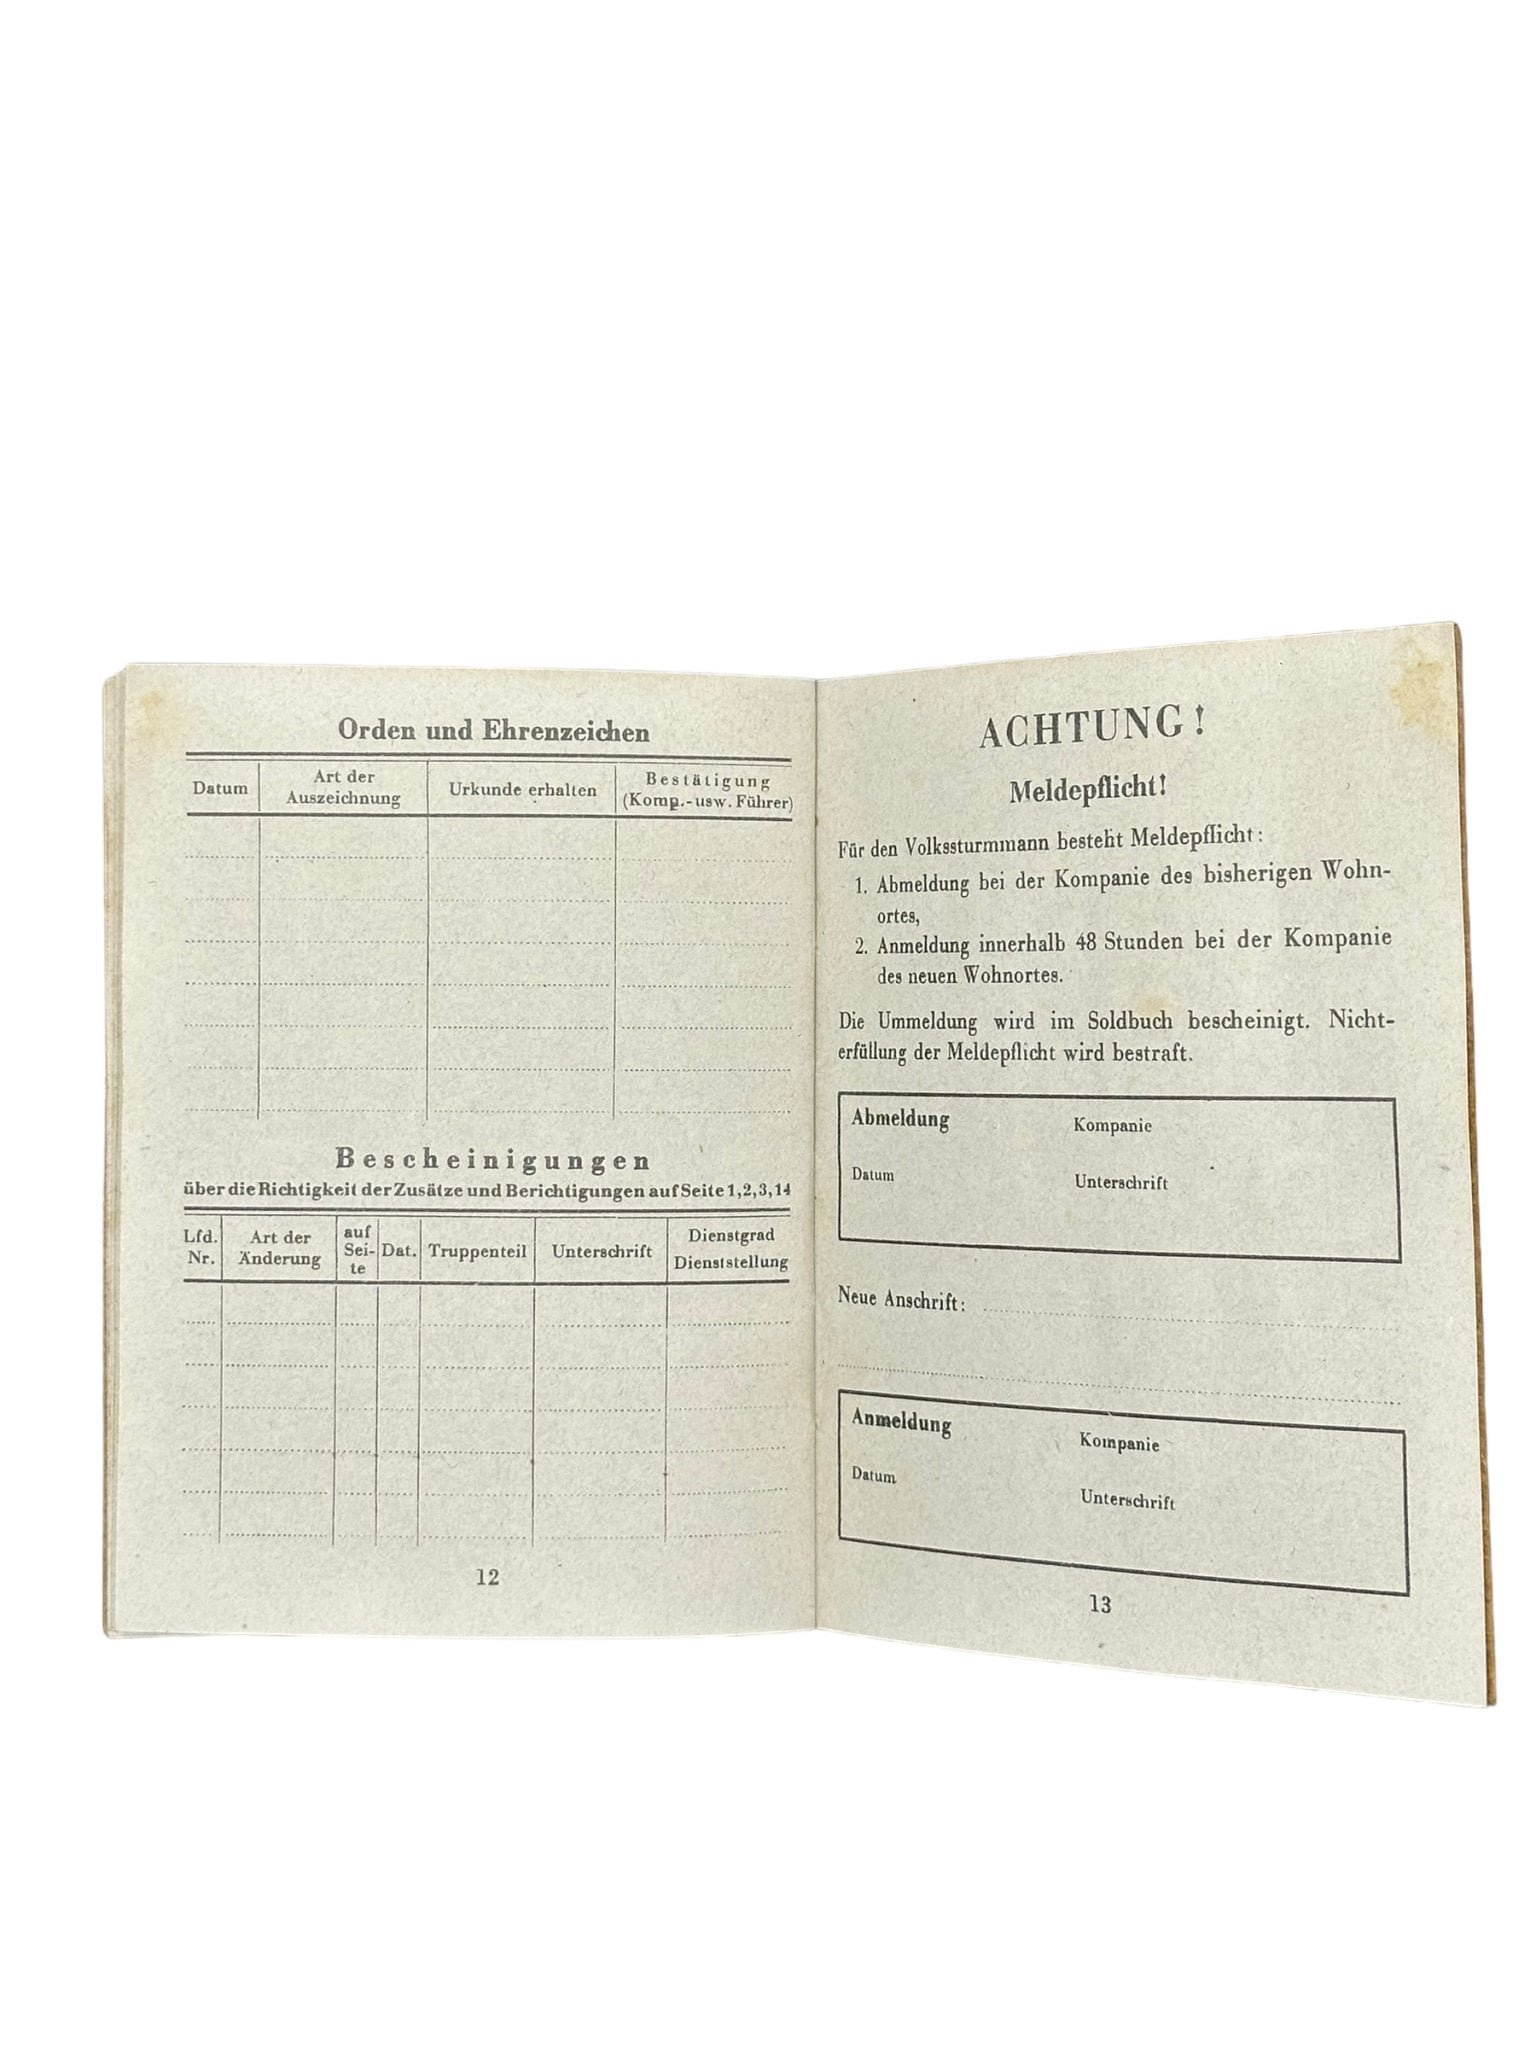 Orden und Ehrenzeichen
Datum
Art der
Auszeichnung
Urkunde erhalten
Bestätigung
(Komp.-usw. Führer)
Bescheinigungen
über die Richtigkeit der Zusätze und Berichtigungen auf Seite 1, 2, 3, 14
Lfd.
Nr.
Art der
Änderung
auf
Sei-
te
Dat.
Truppenteil
Unterschrift
Dienstgrad
Dienststellung
12
ACHTUNG!
Meldepflicht!
Für den Volkssturmmann besteht Meldepflicht:
1. Abmeldung bei der Kompanie des bisherigen Wohn-
ortes,
2. Anmeldung innerhalb 48 Stunden bei der Kompanie
des neuen Wohnortes.
Die Ummeldung wird im Soldbuch bescheinigt. Nicht-
erfüllung der Meldepflicht wird bestraft.
Abmeldung Kompanie
Datum Unterschrift
Neue Anschrift:
Anmeldung Kompanie
Datum Unterschrift
13